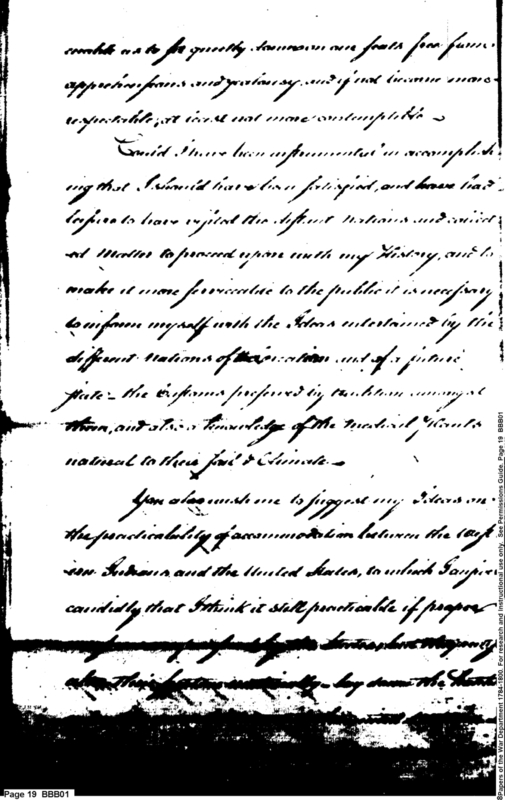 enable us to sit quietly down on our seats free from
apprehensions and jealousy and if not become more
respectable, at least not more contemptible —
Could I have been instrumental in accomplish
ing that I should have been satisfied, and have had
leisure to have visited the distant nations and collect
ed matter to proceed upon with my History, and to
make it more serviceable to the public it is necessary
to inform myself with the Ideas entertained by the
different nations of the creation and of a future
state — the Customs preserved by tradition amongst
them, and also a knowledge of the Medical Plants
natural to their soil & Climate —
You also wish me to suggest my Ideas on
the practicability of accommodation between the West
ern Indians and the United States, to which I answer
candidly that I think it still practicable if proper
by the
lay down the
Page 19 BBB01
Papers of the War Department 1784-1800. For research and instructional use only. See Permissions Guide. Page 19 BBB01